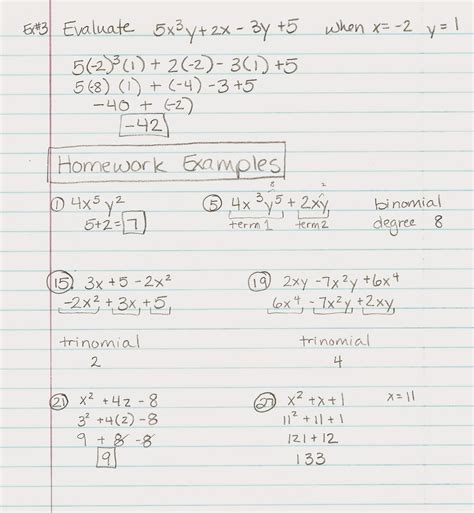 Ex#3 Evaluate 5x³y + 2x - 3y + 5 when x = -2 y = 1
5(-2)³(1) + 2(-2) - 3(1) + 5
5(-8)(1) + (-4) - 3 + 5
-40 + (-2)
-42
Homework Examples
① 4x⁵y²
5+2=7
⑤ 4x³y⁵ + 2xy binomial
8 2
term 1 term 2 degree 8
⑮ 3x + 5 - 2x²
-2x² + 3x + 5
trinomial
2
⑲ 2xy - 7x²y + 6x⁴
6x⁴ - 7x²y + 2xy
trinomial
4
㉑ x² + 4z - 8
3² + 4(2) - 8
9 + 8 - 8
9
㉗ x² + x + 1 x = 11
11² + 11 + 1
121 + 12
133